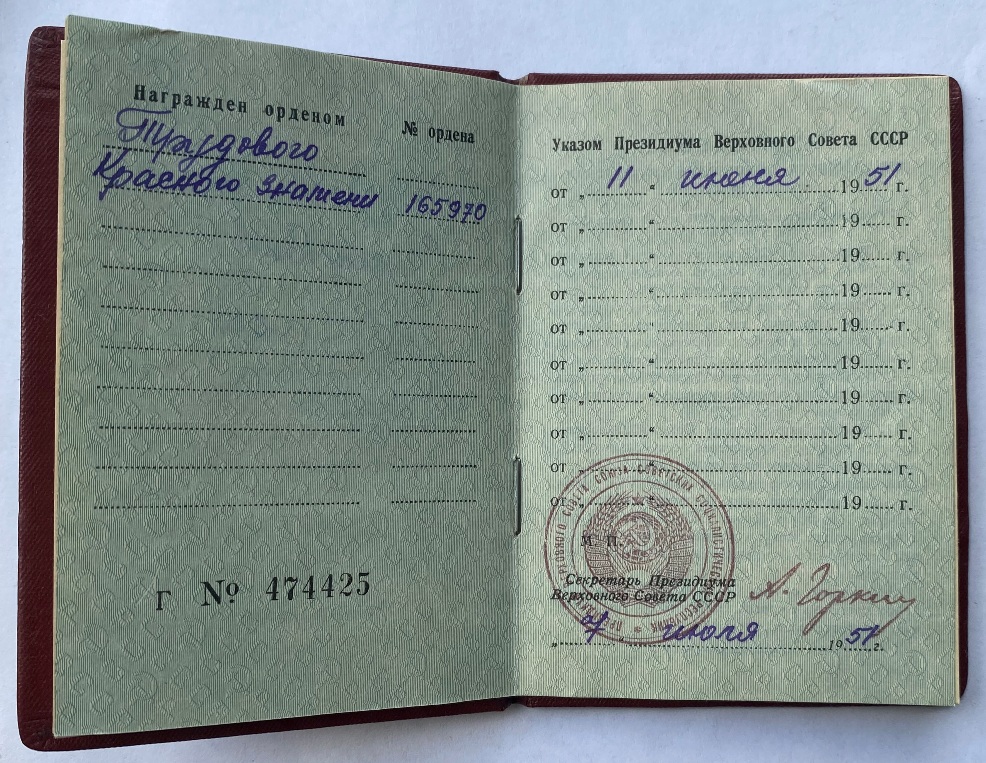 Награжден орденом № ордена
Трудового
Красного Знамени 165970
Г № 474425
Указом Президиума Верховного Совета СССР
от „ 11 “ июня 1951 г.
от „ “ 19 г.
от „ “ 19 г.
от „ “ 19 г.
от „ “ 19 г.
от „ “ 19 г.
от „ “ 19 г.
от „ “ 19 г.
от „ “ 19 г.
от „ “ 19 г.
М. П.
Секретарь Президиума
Верховного Совета СССР А. Горкин
„ июля 1951 г.